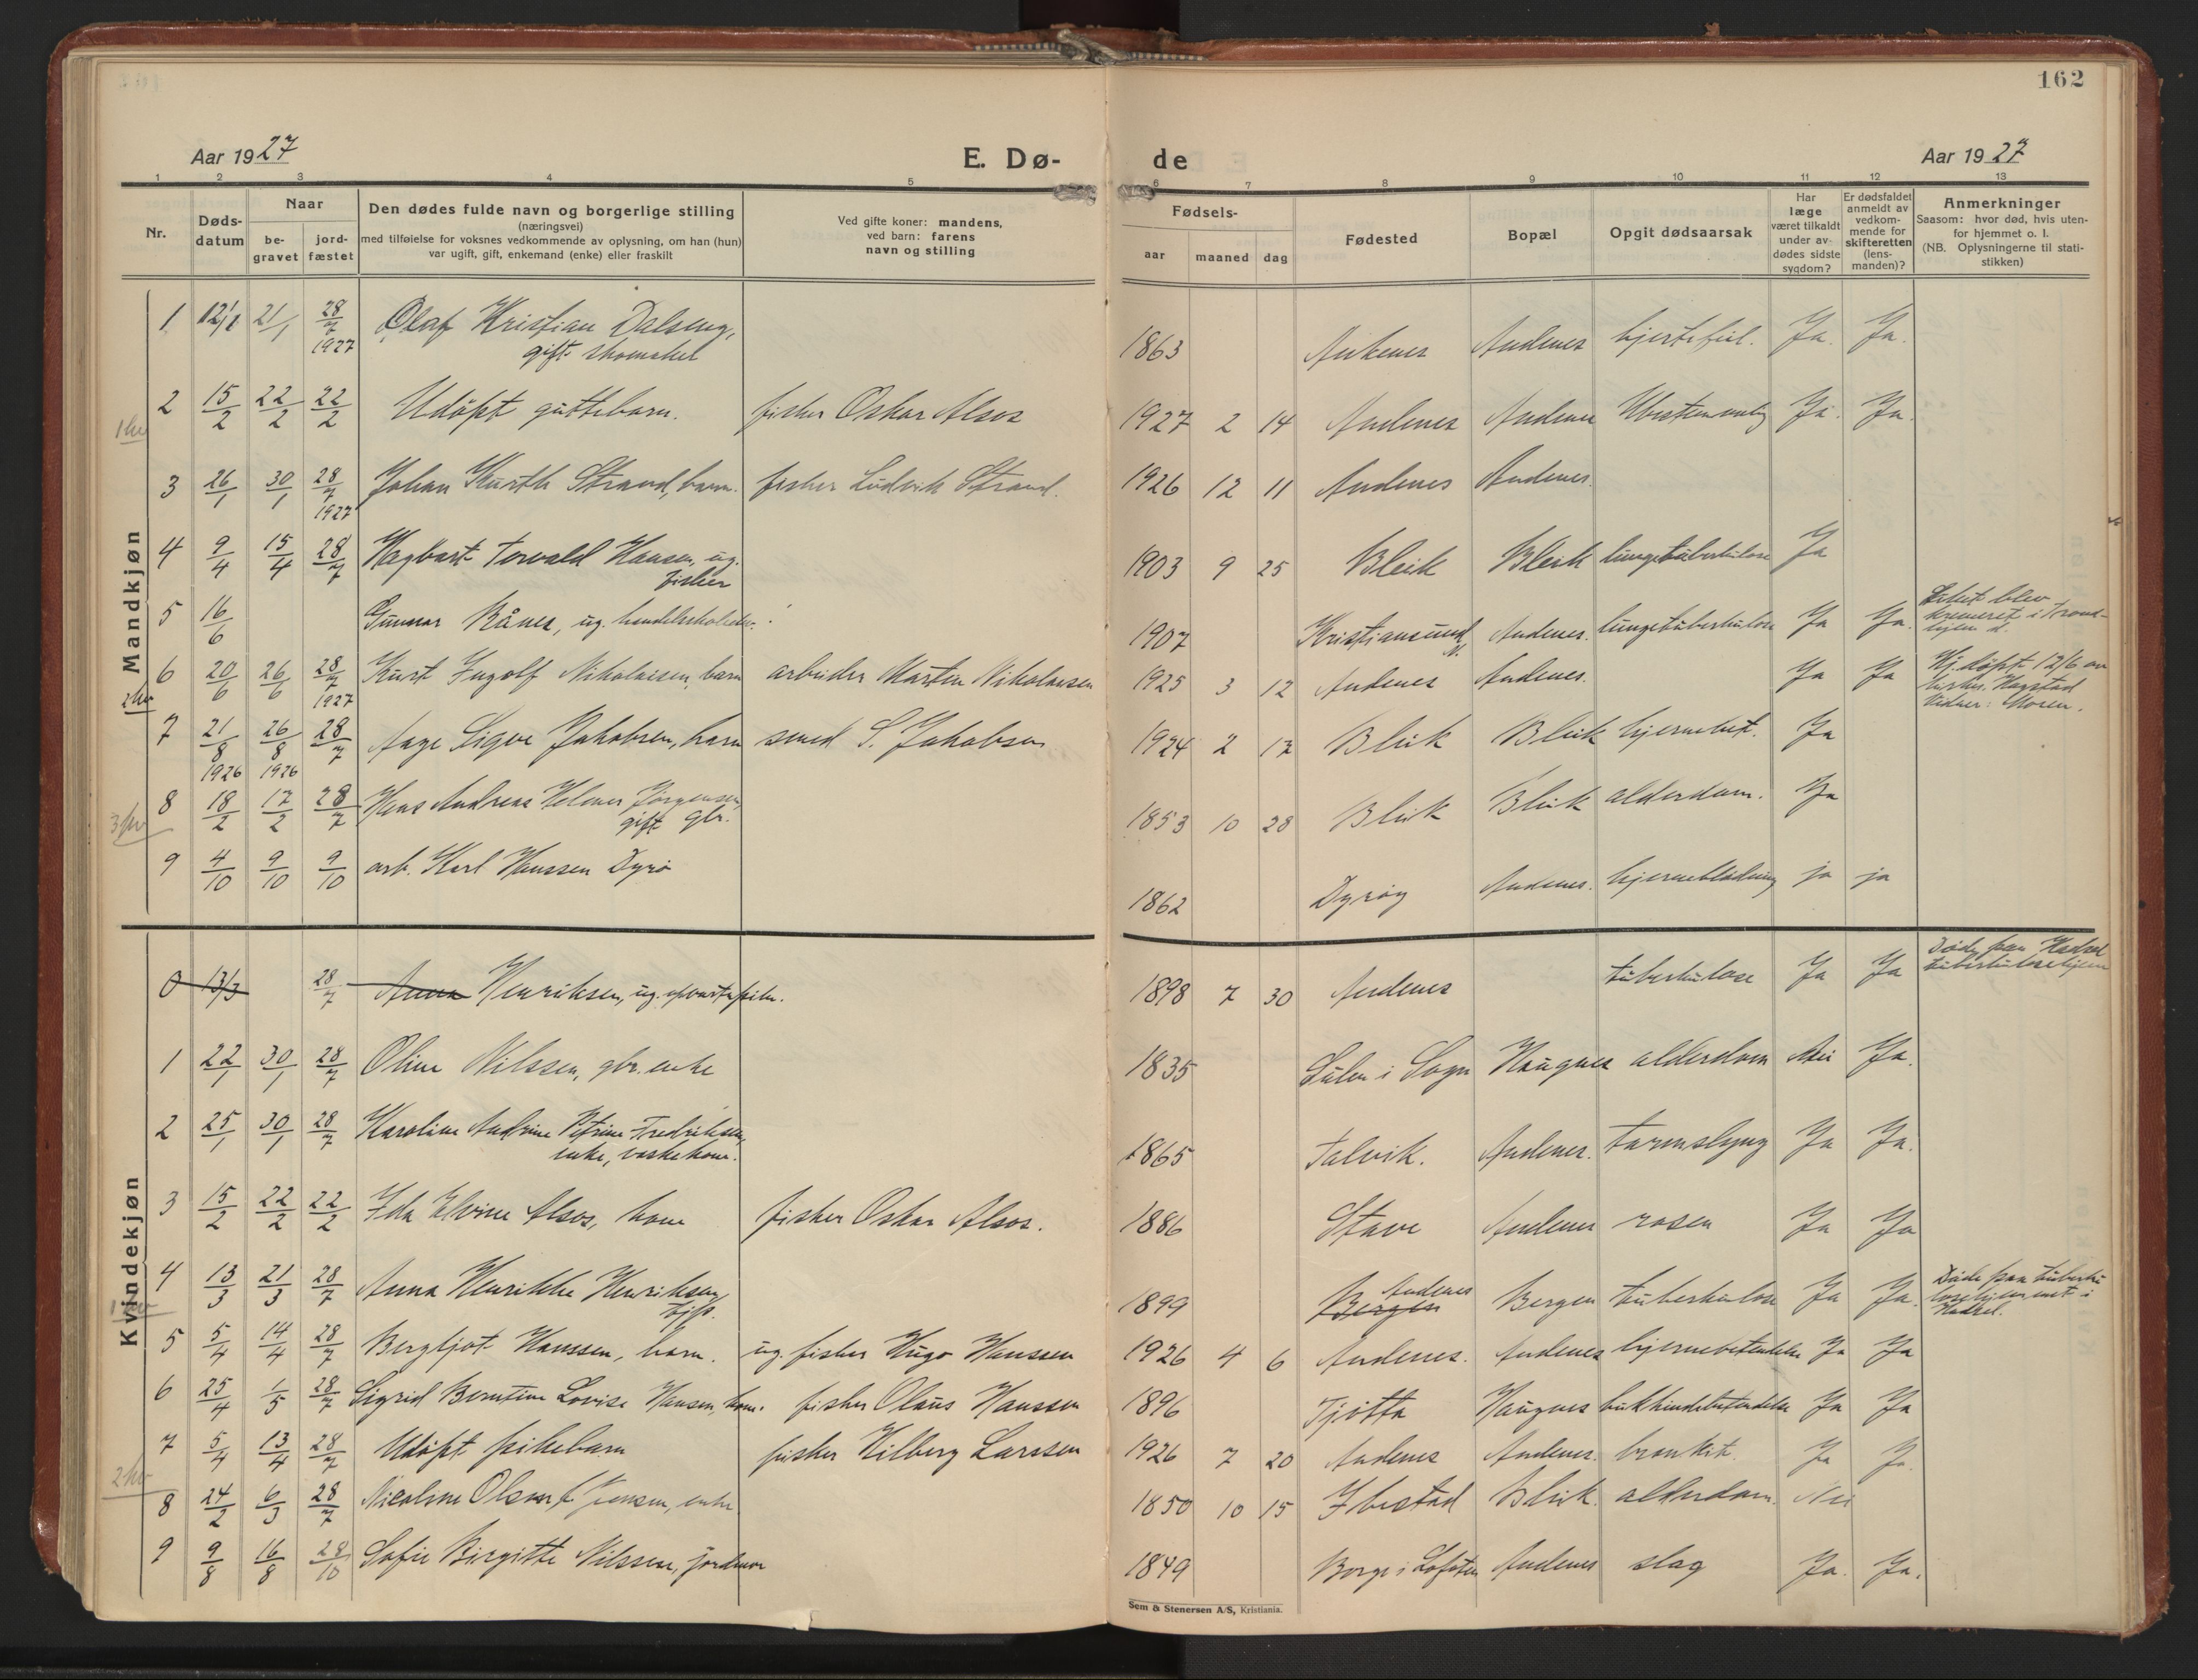 162
Aar 1927 E. Dø- de Aar 1927
1 2 3 4 5 6 7 8 9 10 11 12 13
Nr.
Døds-
datum
Naar
be-
gravet
jord-
fæstet
Den dødes fulde navn og borgerlige stilling
(næringsvei)
med tilføielse for voksnes vedkommende av oplysning, om han (hun)
var ugift, gift, enkemand (enke) eller fraskilt
Ved gifte koner: mandens,
ved barn: farens
navn og stilling
Fødsels-
aar maaned dag
Fødested
Bopæl
Opgit dødsaarsak
Har
læge
været tilkaldt
under av-
dødes sidste
sygdom?
Er dødsfaldet
anmeldt av
vedkom-
mende for
skifteretten
(lens-
manden)?
Anmerkninger
Saasom: hvor død, hvis uten-
for hjemmet o. l.
(NB. Oplysningerne til stati-
stikken)
Mandkjøn
1 12/1 21/1 28/7 1927 Olaf Kristian Dalseng, 1863 Ankenes Andenes hjertefeil. Ja. Ja.
gift skomaker
2 15/2 22/2 22/2 Udöpt guttebarn. fisker Oskar Alsos 1927 2 14 Andenes Andenes Ubestemmelig Ja. Ja.
3 26/1 30/1 28/7 1927 Johan Kurth Strand, barn. fisker Ludvik Strand. 1926 12 11 Andenes Andenes.
4 9/4 15/4 28/7 Hagbart Torvald Hansen, ug. 1903 9 25 Bleik Bleik lungetuberkulose Ja
fisker
5 16/6 Gunnar Rånes, ug. 1907 Kristiansund N. Andenes. lungetuberkulose Ja Ja.
Liket blev
kremeret i Trond-
hjem
6 20/6 26/6 28/7 1927 Kurt Ingolf Nikolaisen, barn arbeider Martin Nikolaisen 1925 3 12 Andenes Andenes. Ja Ja
Hj. döpt 12/6 av
Hagstad
Vidner: Moren.
7 21/8 1926 26/8 1926 28/7 Aage Sigve Jakobsen, barn smed S. Jakobsen 1924 2 17 Bleik Bleik hjernebet. Ja
8 18/2 17/2 28/7 Hans Andreas Helmer Jörgensen, 1853 10 28 Bleik Bleik alderdom. Ja
gift gbr.
9 4/10 9/10 9/10 arb. Karl Hanssen Dyrö 1862 Dyröy Andenes. hjerneblödning ja ja
Kvindekjøn
0 13/3 28/7 Anna Henriksen, ug. 1898 7 30 Andenes tuberkulose Ja Ja
Döde paa Hadsel
tuberkulosehjem
1 22/1 30/1 28/7 Oline Nilssen, gbr. enke 1835 Sulen i Sogn Haugnes alderdom Nei Ja.
2 25/1 30/1 28/7 Karoline Andrine Petrine Fredriksen, 1865 Talvik. Andenes. tarmslyng Ja Ja.
enke, vaskekone.
3 15/2 22/2 22/2 Ida Elvine Alsos, kone fisker Oskar Alsos. 1886 Stave Andenes rosen Ja Ja
4 13/3 21/3 28/7 Anna Henrikke Henriksen, 1899 Bergen Andenes Bergen tuberkulose Ja Ja.
tjp.
Döde paa tuberku-
losehjemmet i
Hadsel.
5 5/4 14/4 28/7 Bergljot Hanssen, barn. ug. fisker Hugo Hanssen 1926 4 6 Andenes. Andenes hjernebetendelse Ja Ja
6 25/4 1/5 28/7 Sigrid Berntine Lovise Hansen, kone. fisker Olaus Hanssen 1896 Tjötta Haugnes bukhindebetendelse Ja Ja
7 5/4 13/4 28/7 Udöpt pikebarn fisker Hilberg Larssen 1926 7 20 Andenes Andenes. bronkit. Ja Ja.
8 24/2 6/3 28/7 Nicoline Jensen, enke 1850 10 15 Ibestad Bleik. alderdom. Nei
9 9/8 16/8 28/10 Sofie Birgitte Nilssen, jordmor 1849 Borge i Lofoten Andenes slag Ja. Ja.
Sem & Stenersen A/S, Kristiania.